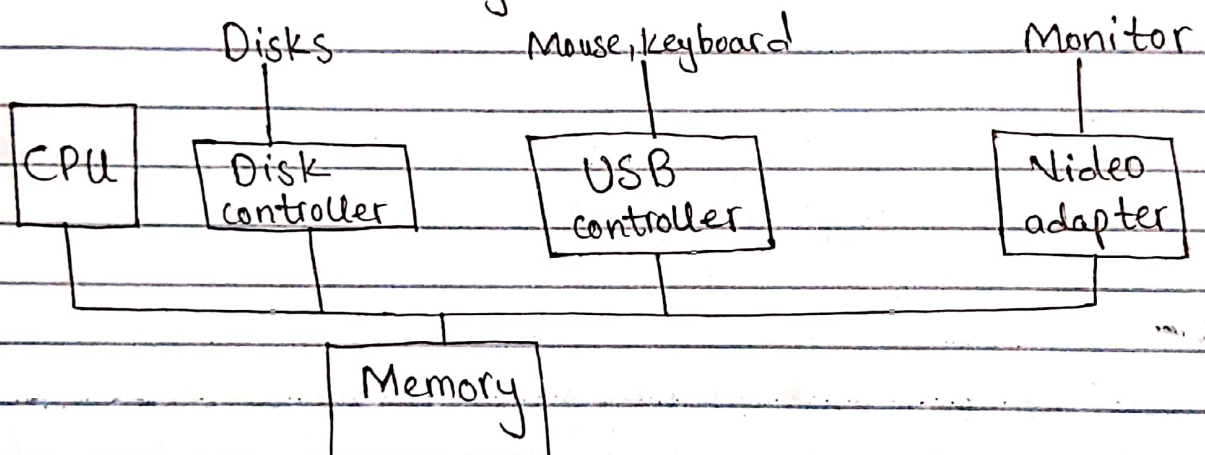 Disks
Mouse, keyboard
Monitor
CPU
Disk
controller
USB
controller
Video
adapter
Memory